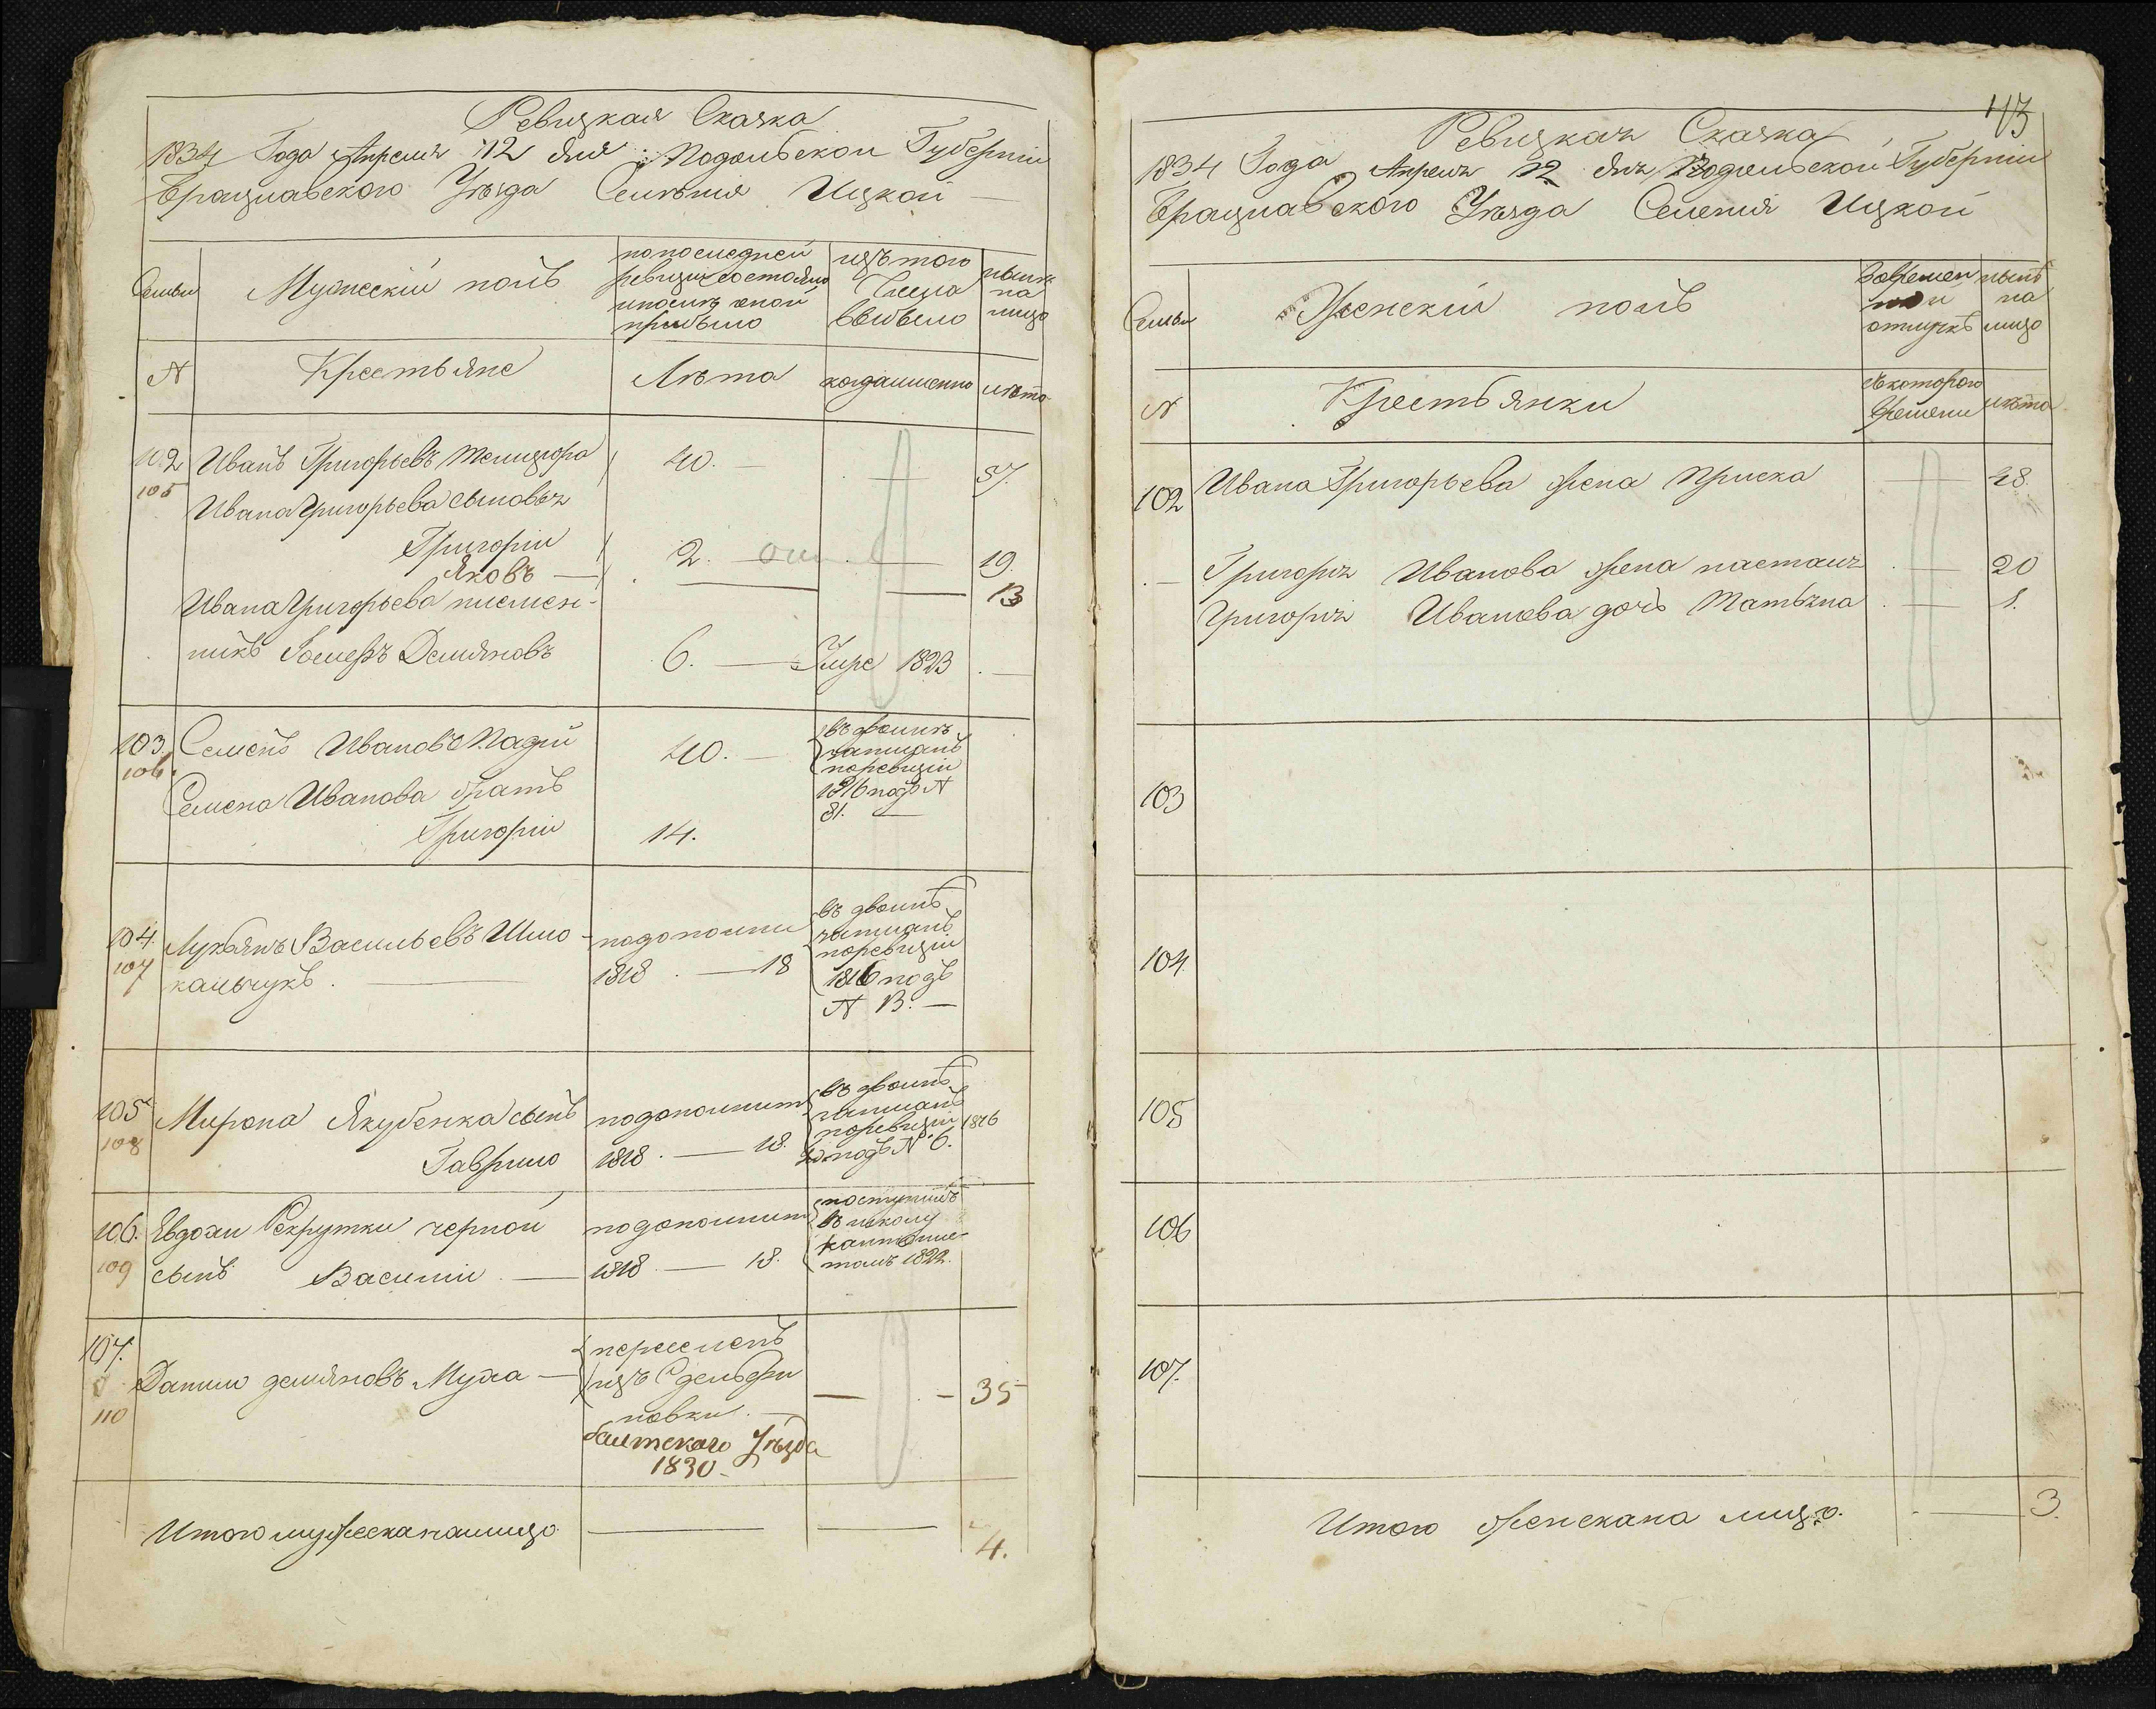 Ревизкая Сказка
1834 Года Апреля 12 дня Подольской Губерніи
Брацлавского Уѣзда Селенія Ицкой
Семьи
Мужескій полъ
по последней
ревизіи состояло
и после оной
прибыло
изъ того
Числа
выбыло
нынѣ
на
лицо
N
Крестьяне
Лѣта
когда именно
лѣта
102
105
Иванъ Григорьевъ
40.
57.
Ивана Григорьева сыновья
Григорій
2.
19.
Яковъ —
13
Ивана Григорьева племен-
никъ Іосифъ Демяновъ
6. —
Умре 1823
103.
106.
Семенъ Ивановъ Падій
40. —
въ двоинѣ
записанъ
по ревизіи
1816 подъ N
81. —
Семена Иванова братъ
Григорій
14.
104.
107
Лукьянъ Васильевъ Шпо-
кальчукъ. —
подополни
1818. — 18
въ двоинѣ
записанъ
по ревизіи
1816 подъ
N 13. —
105
108
Мирона Якубенка сынъ
Гаврило
подополнит
1818. — 18.
въ двоинѣ
записанъ
по ревизіи 1816
подъ N 6.
106.
109
Евдохи Рекрутки черной
сынъ Василій —
подополнит
1818 — 18.
поступилъ
въ школу
кантонис-
товъ 1822.
107.
110
Данило демяновъ Муха —
переселенъ
изъ
новки. —
балтского Уѣзда
1830 —
— . — 35
Итого мужеска налицо — — 4.
43
Ревизкая Сказка
1834 Года Апреля 12 дня Подольской Губерніи
Брацлавского Уѣзда Селенія Ицкой
Семьи
Женскій полъ
Во времен
ной
отлучкѣ
нынѣ
на
лицо
N
Крестьянки
съ которого
времени
лѣта
102
Ивана Григорьева жена Приска
48.
— Григорія Иванова жена настася
— 20
Григорія Иванова дочь Татьяна
— 1.
103
104
105
106
107.
Итого женска на лицо. — 3.